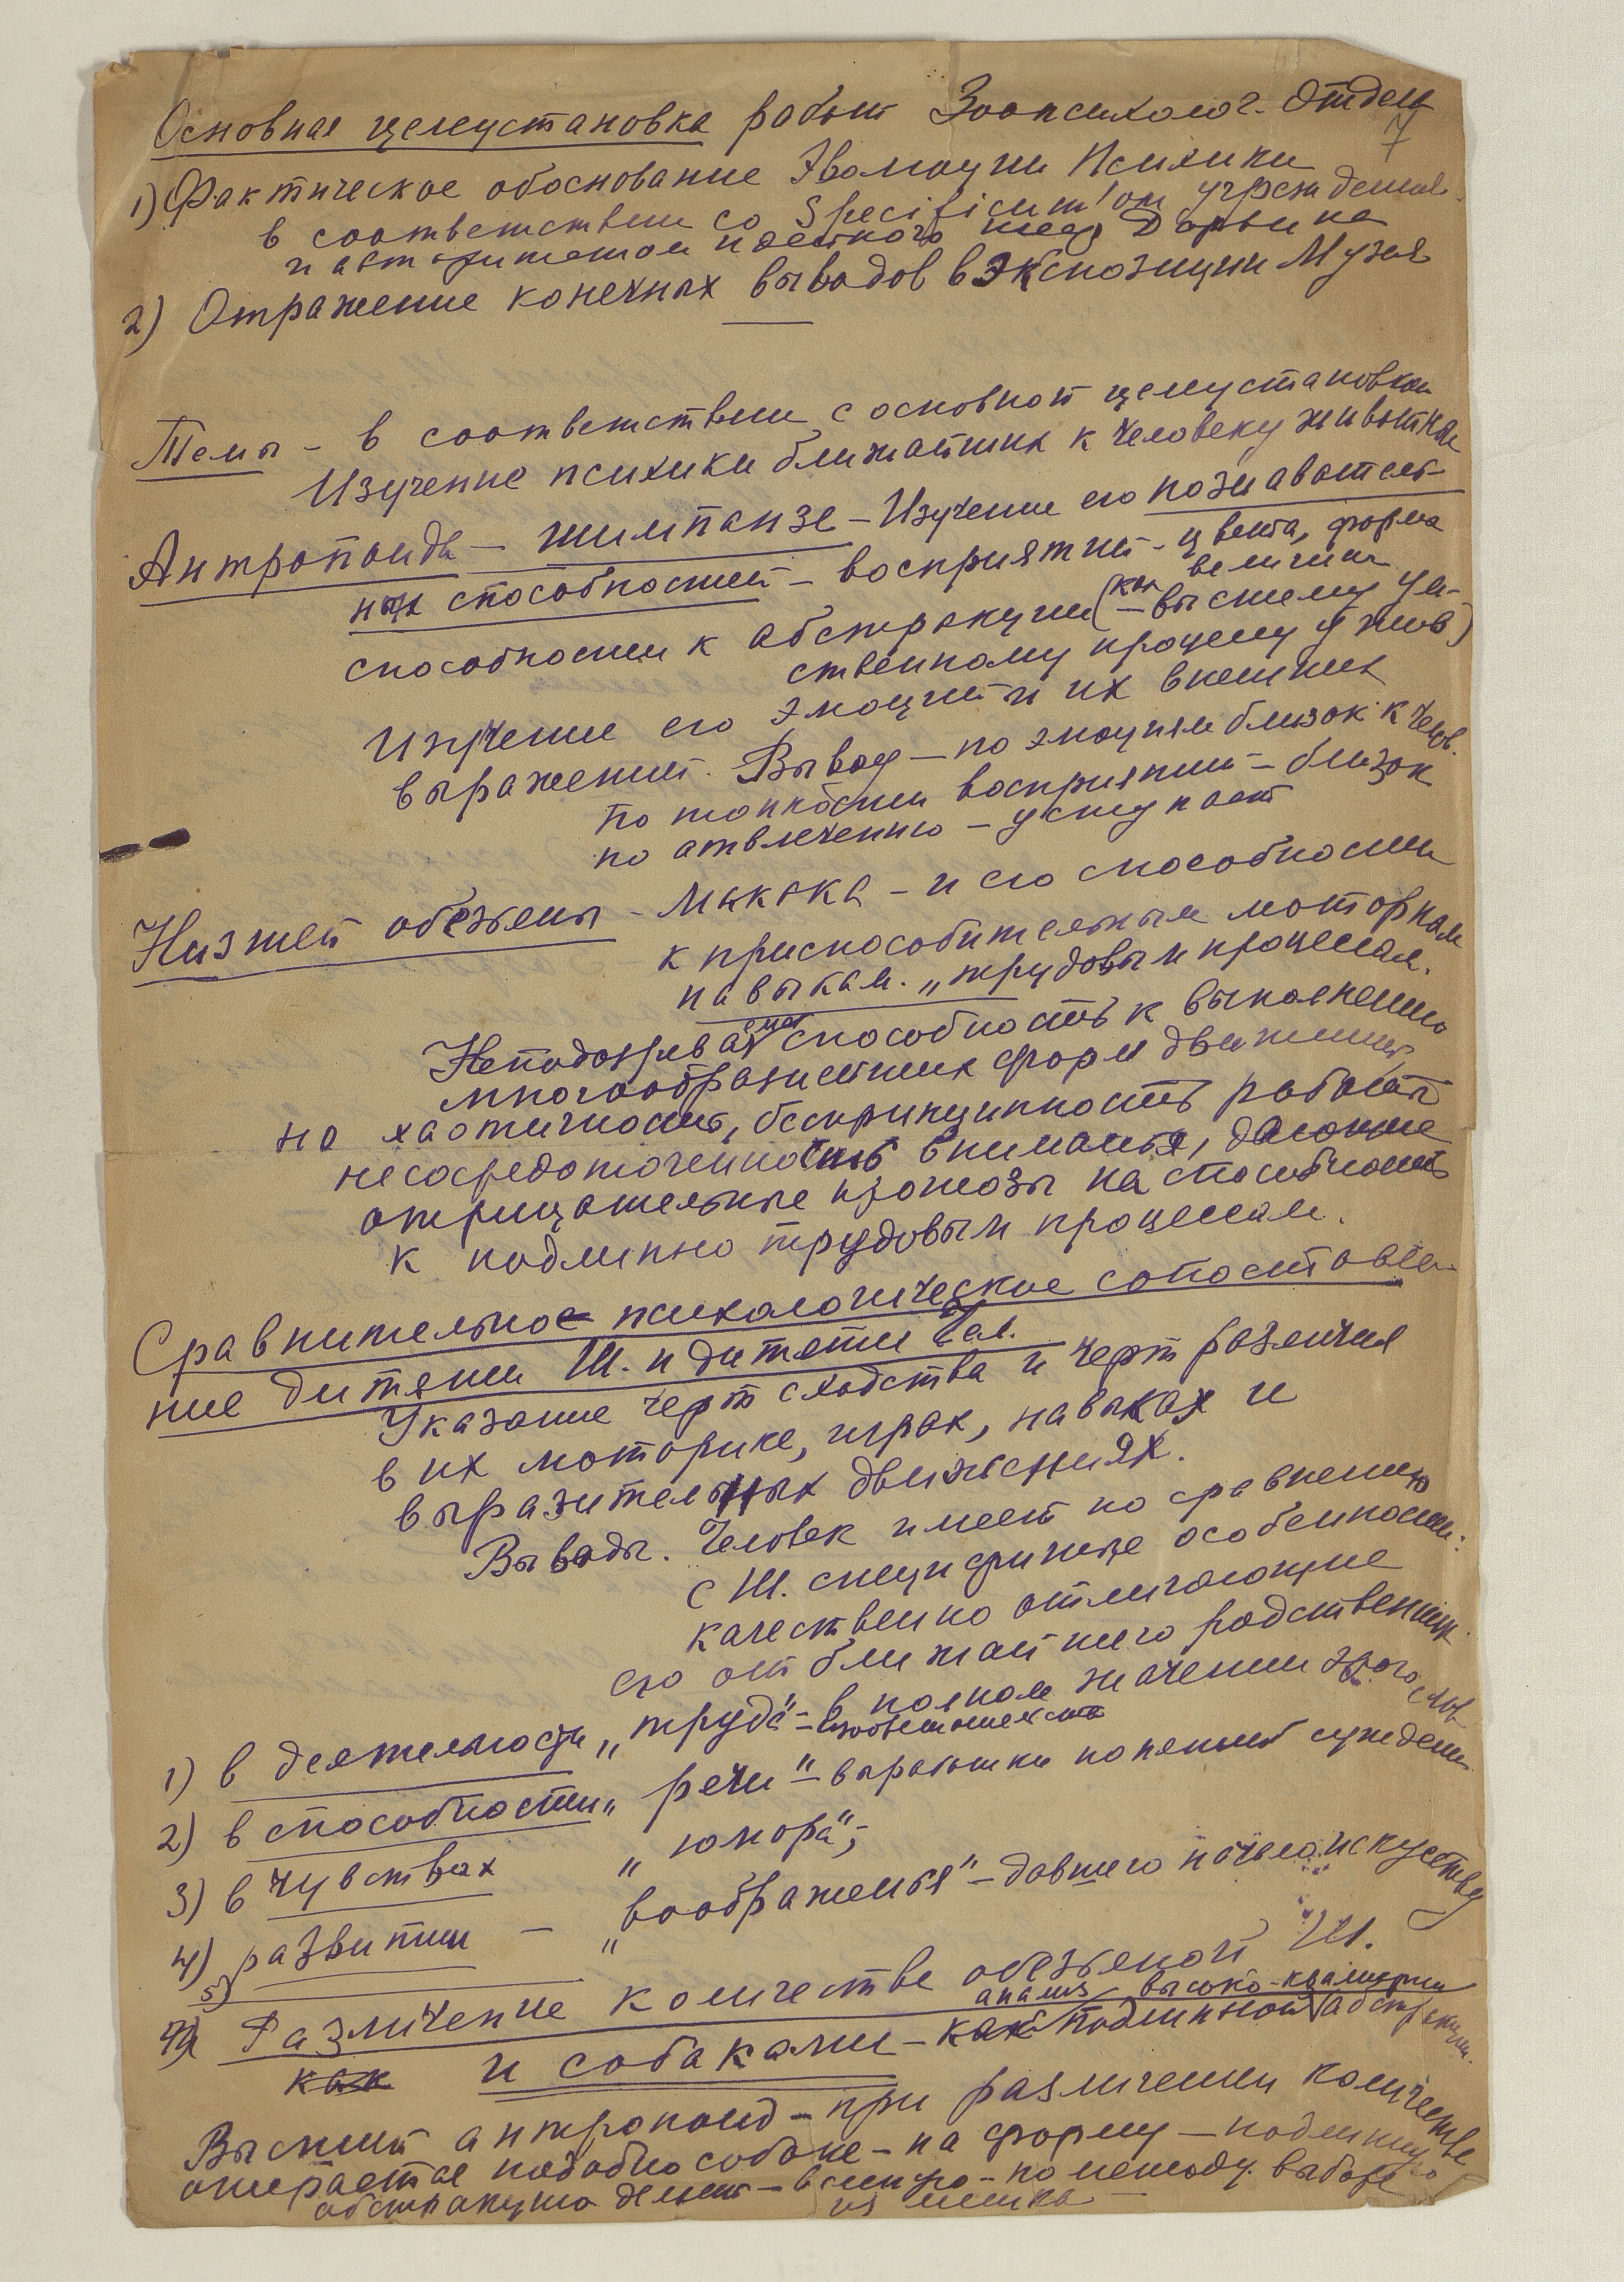 Основная целеустановка работ Зоопсихолог. Отдела
7
1) Фактическое обоснование Эволюции Психики
в соответствии со Specificum'ом учреждения
и авторитетом
Дарвина
2) Отражение конечных выводов в экспозиции Музея
Темы – в соответствии с основной целеустановкой
Изучение психики ближайших к человеку животных
Антропоиды – шимпанзе – Изучение его познаватель-
ных способностей – восприятий – цвета, форма
величина
способности к абстракции (как – высшему ум-
ственному процессу у жив.)
Изучение его эмоций и их внешних
выражений. Вывод – по эмоциям близок к челов.
по тонкости восприятий – близок
по отвлечению – уступает
Низшей обезьяны – Макака – и его способности
к приспособительным моторным
навыкам. „трудовым процессам.
Неподозреваемая способность к выполнению
многообразнейших форм движений,
но хаотичность, беспринципность работы
несосредоточенность внимания, дающие
отрицательные прогнозы на способность
к подлинно трудовым процессам.
Сравнительное психологическое сопоставле-
ние дитяти Ш. и дитяти Чел.
Указание черт сходства и черт различия
в их моторике, играх, навыках и
выразительных движениях.
Выводы. Человек имеет по сравнению
с Ш. специфичные особенности:
качественно отличающие
его от ближайшего родственник.
1) в деятельности „труда" – в полном значении этого слов
2) в способности „речи" – выраженики понятий суждений
3) в чувствах „юмора";
4) развитии – „воображения" – давшего начало искусству
5)
Различение количеств обезьяной Ш.
анализ высоко-квалифиц
и собаками – как подлинной абстракции.
как
Высший антропоид – при различении количеств
опирается подобно собаке – на форму – подлинную
абстракцию делает – по методу выбора